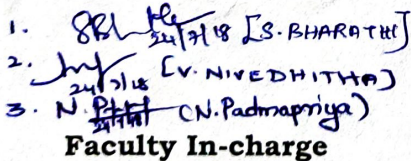 1. 24/7/18 [S. BHARATHI]
2. 24/7/18 [V. NIVEDHITHA]
3. N. 24/7/18 (N. Padmapriya)
Faculty In-charge